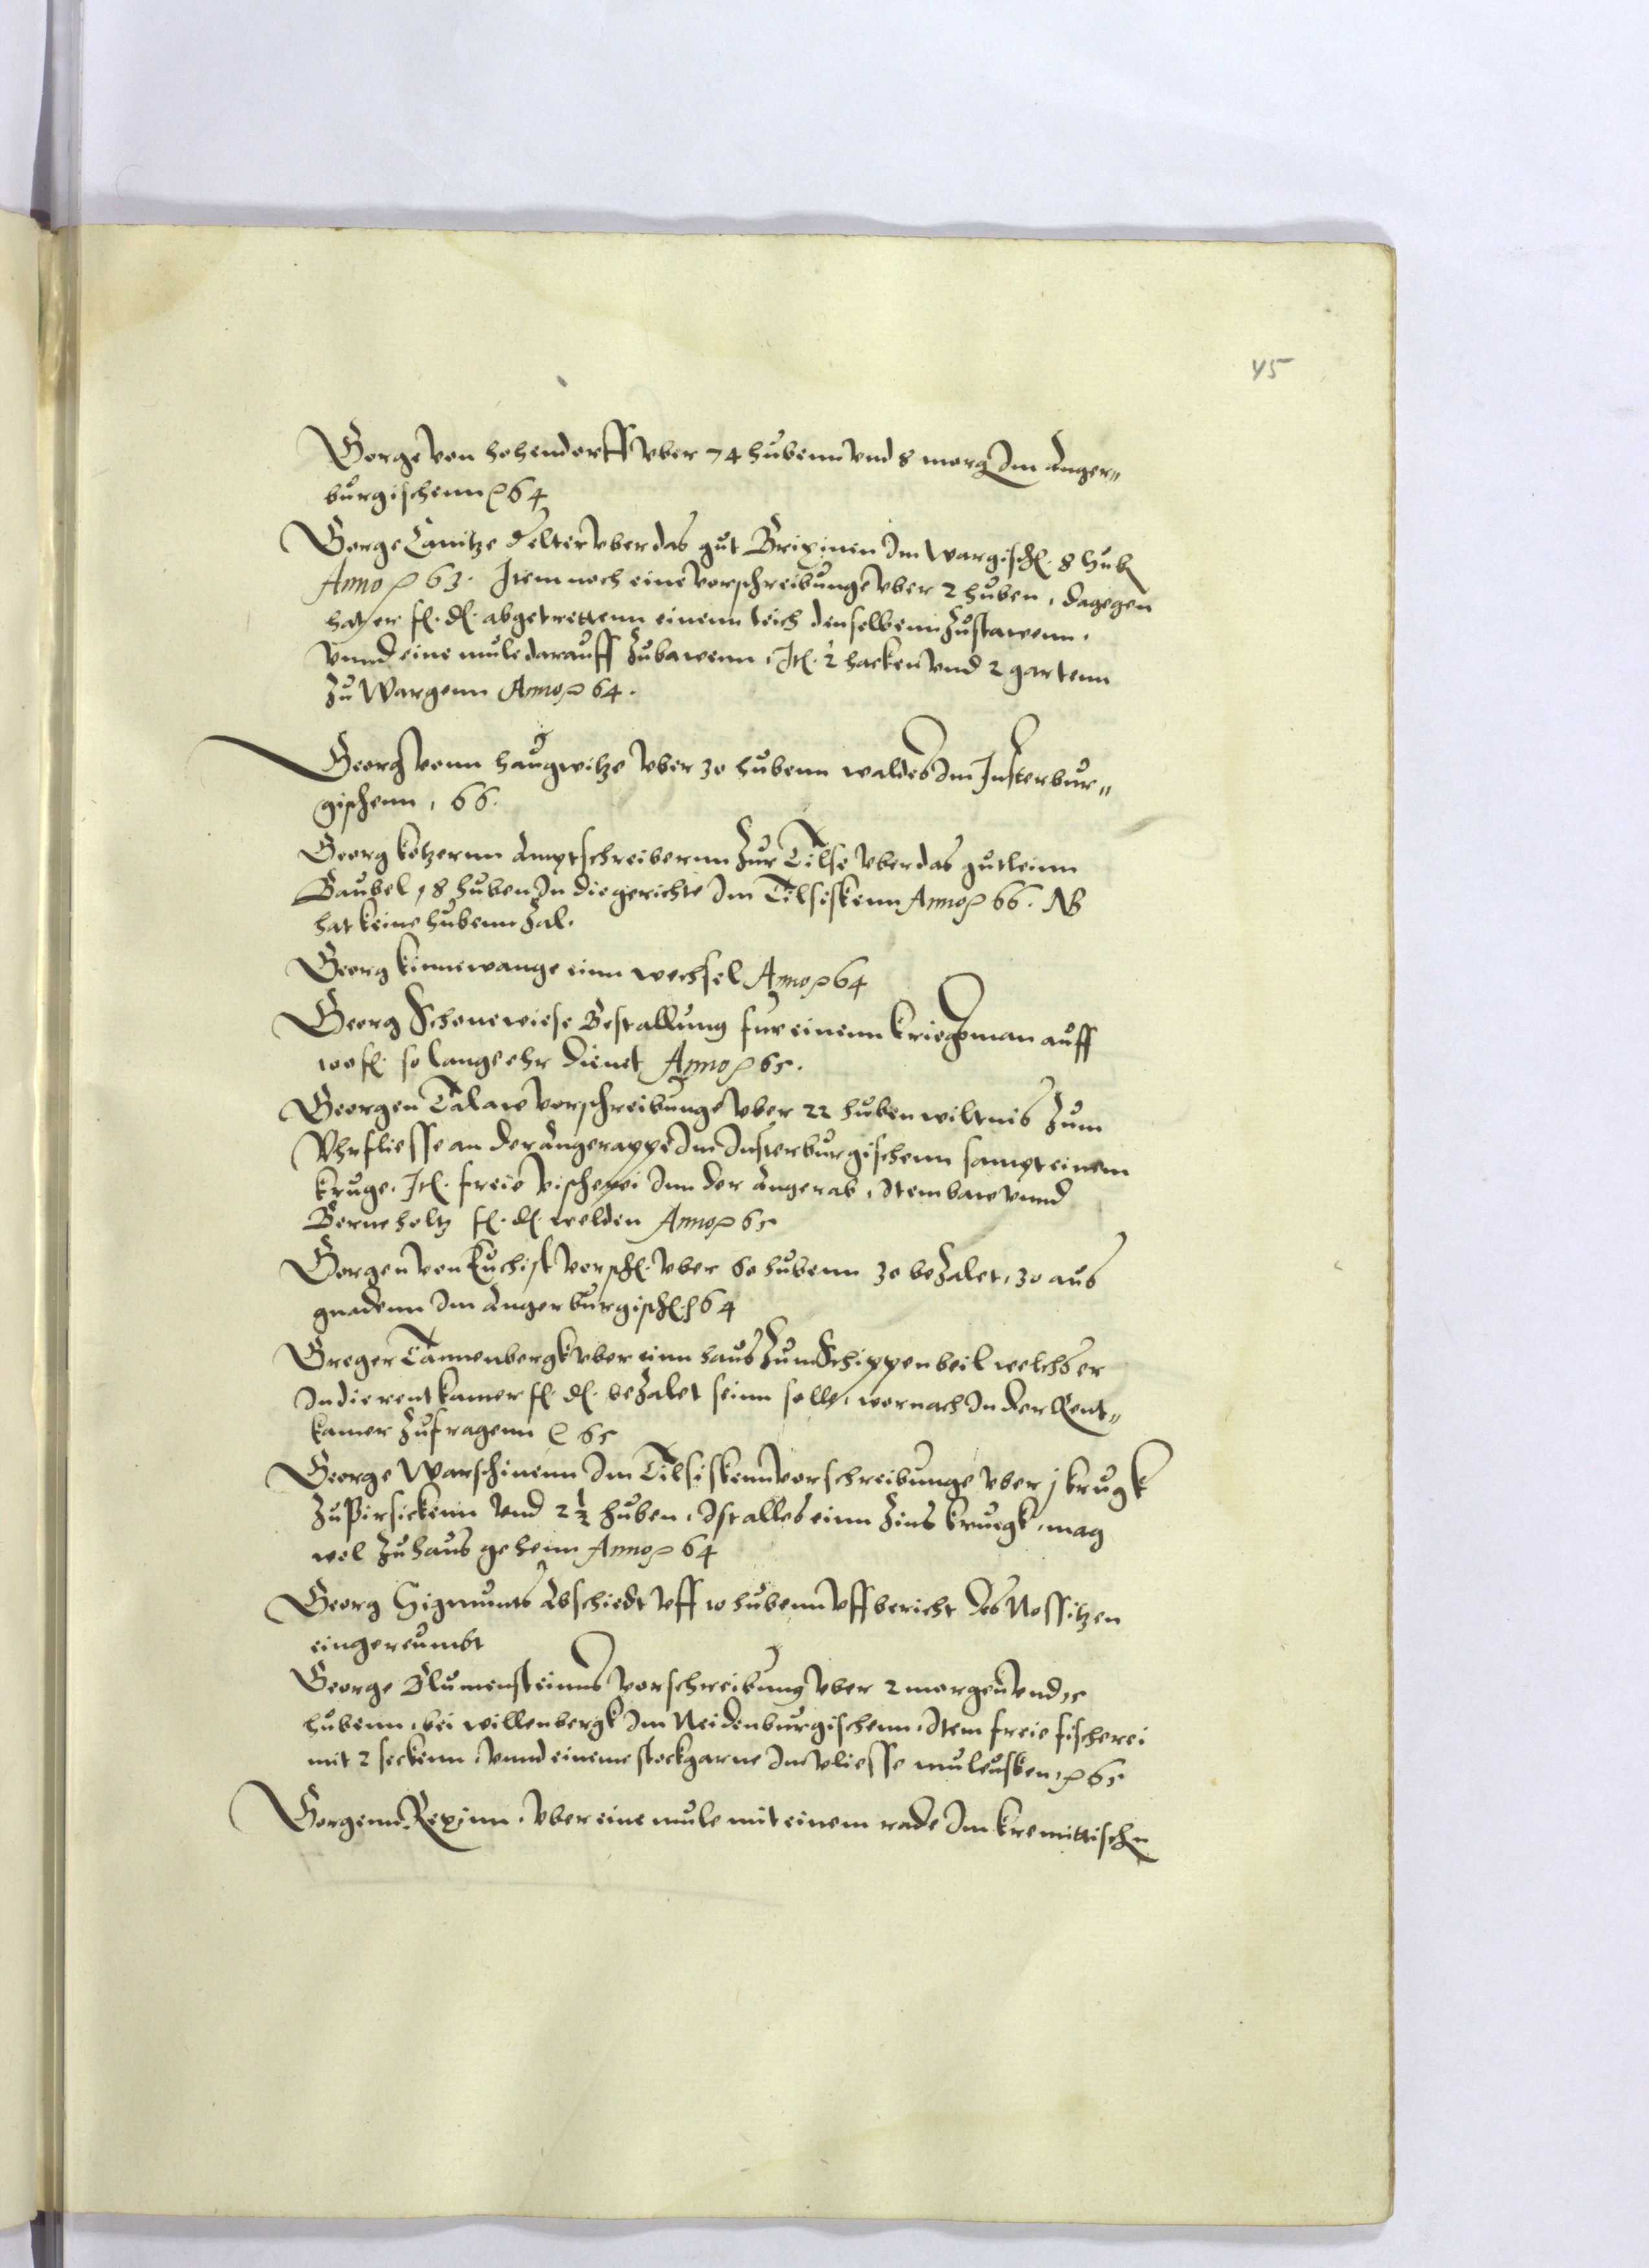 45
Gorge von hohendorff vber 74 hubenn vnd 8 morg Im Anger„
burgischenn ꝛ 64
Gorge Canitze d elter vber das gut Brixinen Im Wargisch. 8 hub
Anno ꝛ 63. Item noch eine vorschreibunge vber 2 huben, dagegen
hat er fl. dl. abgetrettenn einenn teich denselbenn zustawenn,
vnnd eine mule darauff zubawenn, Itl. 2 hacken vnd 2 gartenn
zu Wargenn Anno ꝛ 64.
Georg vonn haugwitze vber 30 hubenn waldes Im Insterbur„
gischenn, 66.
Georg kotzernn Amptschreibernn zur Tilse vber das gutleinn
Baubel, 8 huben In die gerichte Im Tilsiskenn Anno ꝛ 66. NB
hat keine hubenn zal.
Georg kinnewange einn wechsel Anno ꝛ 64
Georg Schonewiese Bestallung fur einenn kriegsman auff
100 fl. so lange ehr dienet Anno ꝛ 65.
Georgen Talaw vorschreibunge vber 22 huben wiltnis zum
Vhrfliesse an der Angerappe Im Insterburgischenn sampt einem
kruge, Itl. freie vischerei Inn der Angerab, Item baw vnnd
Berneholtz fl. dl. welden Anno ꝛ 65
Gorgen von Kuchist vorschl. vber 60 hubenn 30 bezalet, 30 aus
gnadenn Im Angerburgischl. ꝛ 64
Greger Tannenbergk vber einn haus zum Schippenbeil welchs er
In die rentkamer fl. dl. bezalet seinn solle, wornach In der Rent„
kamer zufragenn ꝛ 65
George Warschinenn Im Tilsiskenn vorschreibunge vber j krugk
zu Pirsickenn vnd 2 ½ huben, Ist alles einn zins kruegk, mag
wol zu haus gehenn Anno ꝛ 64
Georg Sigmunts Abschiedt vff 10 hubenn vff bericht des Nossitzen
eingereumbt
George Blumensteinns vorschreibung vber 2 morgen vnd 15
hubenn, bei willenbergk Im Neidenburgischenn, Item freie fischerei
mit 2 seckenn, vnnd einem stockgarne Im vliesse mulensken, ꝛ 65
Gorgenn Rexinn, vber eine mule mit einem rade Im kremittischen